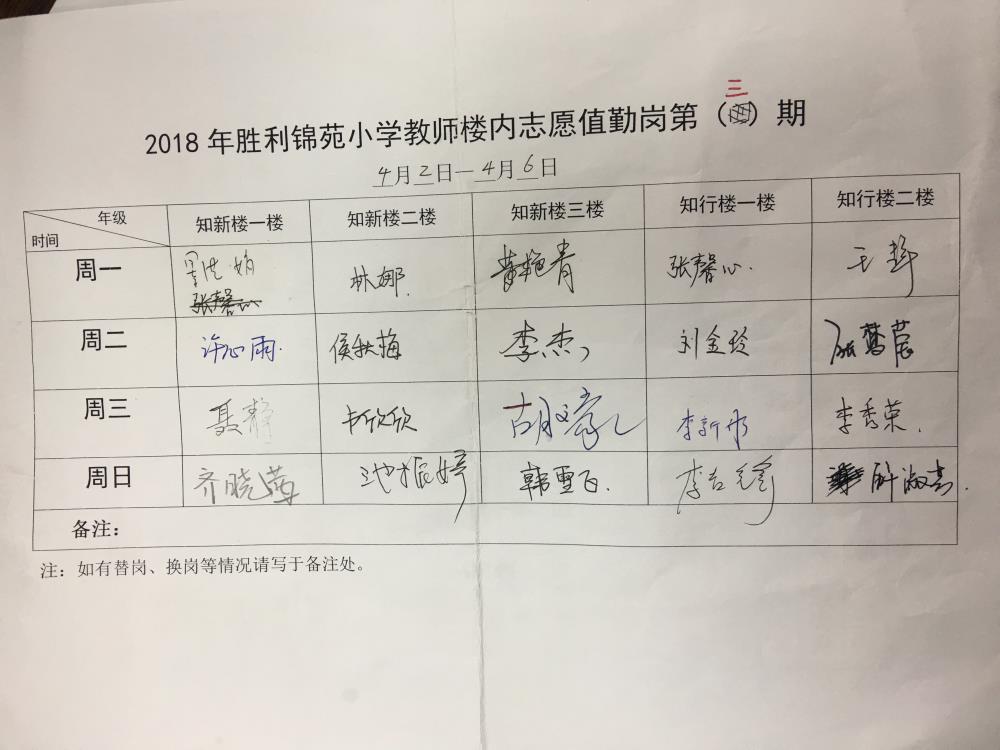 三
2018 年胜利锦苑小学教师楼内志愿值勤岗第（）期
4月2日—4月6日
年级
时间
知新楼一楼 知新楼二楼 知新楼三楼 知行楼一楼 知行楼二楼
周一 林娜. 张馨心.
张馨心
周二 许沁雨. 侯秋梅 李杰 刘金玲
周三 聂静 李秀荣.
周日 齐晓莹 池振婷 韩雪飞.
备注：
注：如有替岗、换岗等情况请写于备注处。